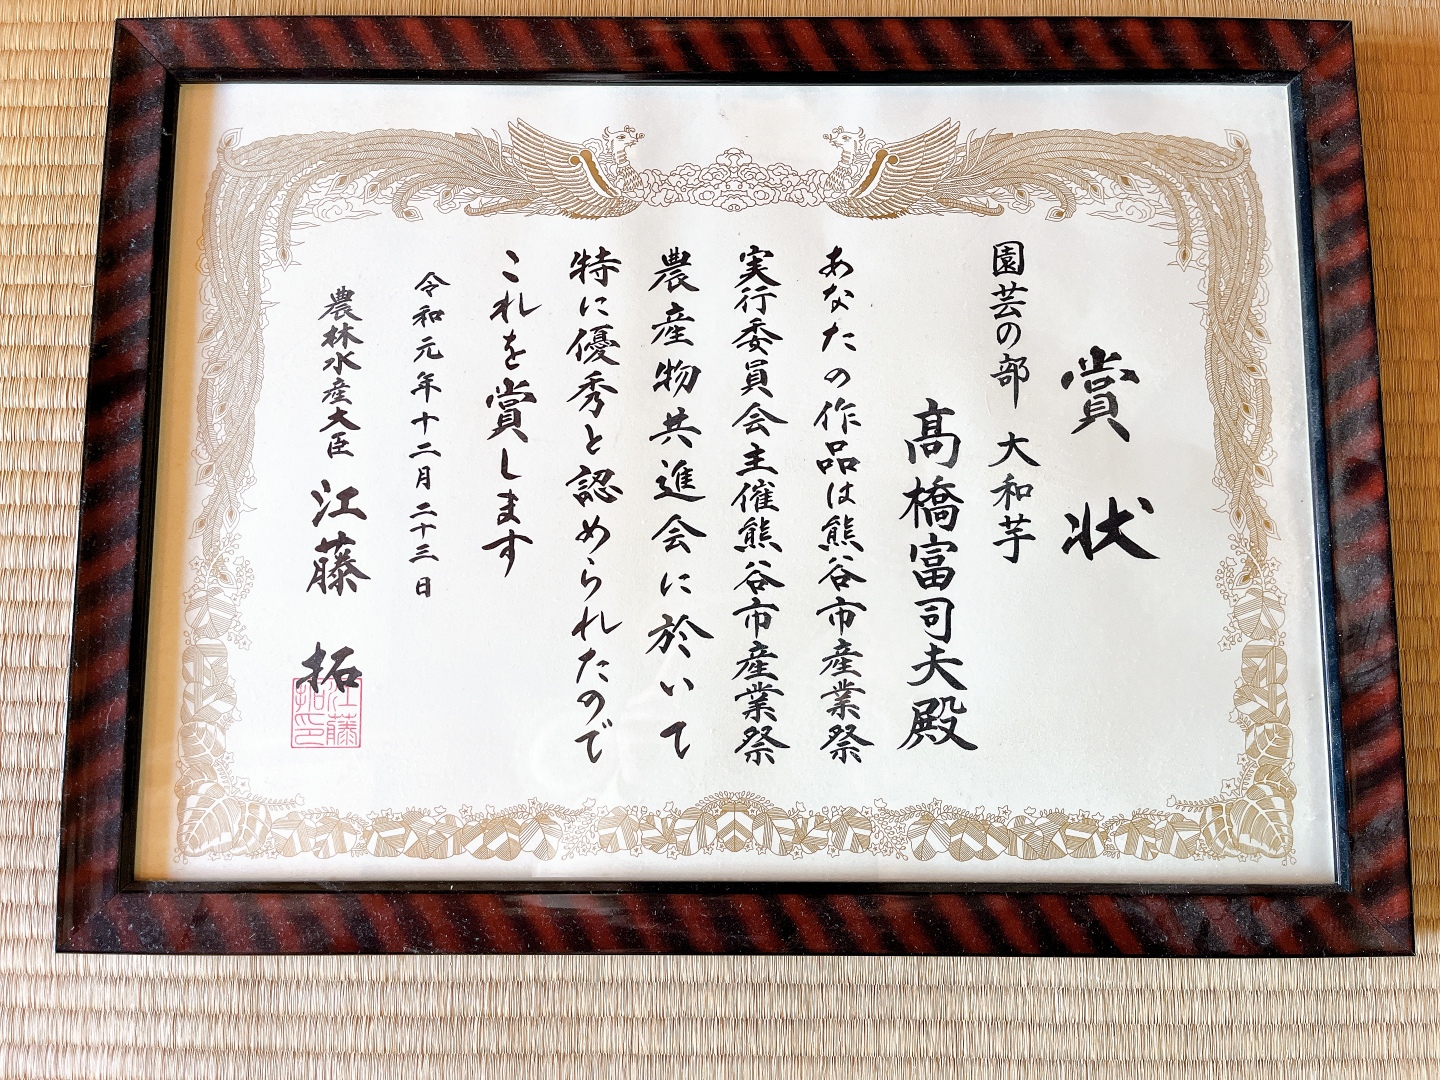 賞状
園芸の部 大和芋
髙橋富司夫殿
あなたの作品は熊谷市産業祭
実行委員会主催熊谷市産業祭
農産物共進会に於いて
特に優秀と認められたので
これを賞します
令和元年十二月二十三日
農林水産大臣 江藤 拓
江藤
拓印